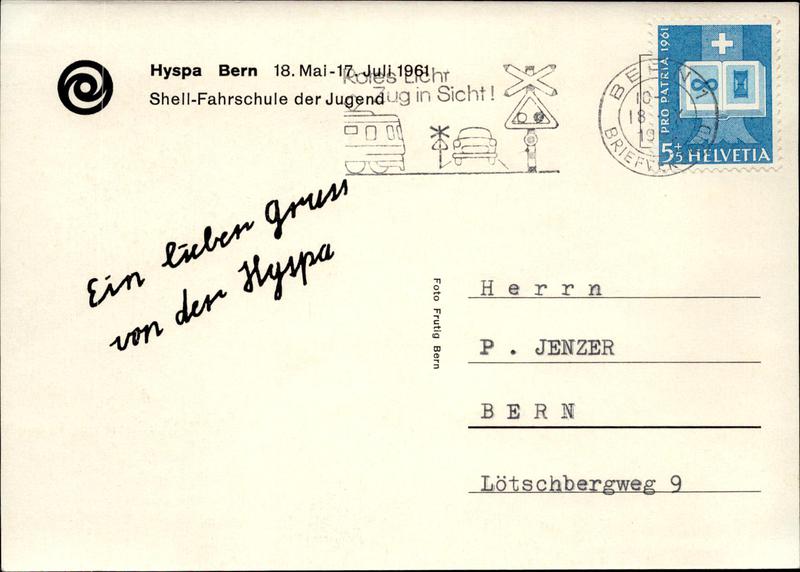 Hyspa Bern 18. Mai-17. Juli 1961
Shell-Fahrschule der Jugend
Rotes Licht
Zug in Sicht!
BERN 1
10
18
19
BRIEFVERSAND
PRO PATRIA 1961
5+5 HELVETIA
Ein lieber Gruss
von der Hyspa
Foto Frutig Bern
Herrn
P. JENZER
BERN
Lötschbergweg 9